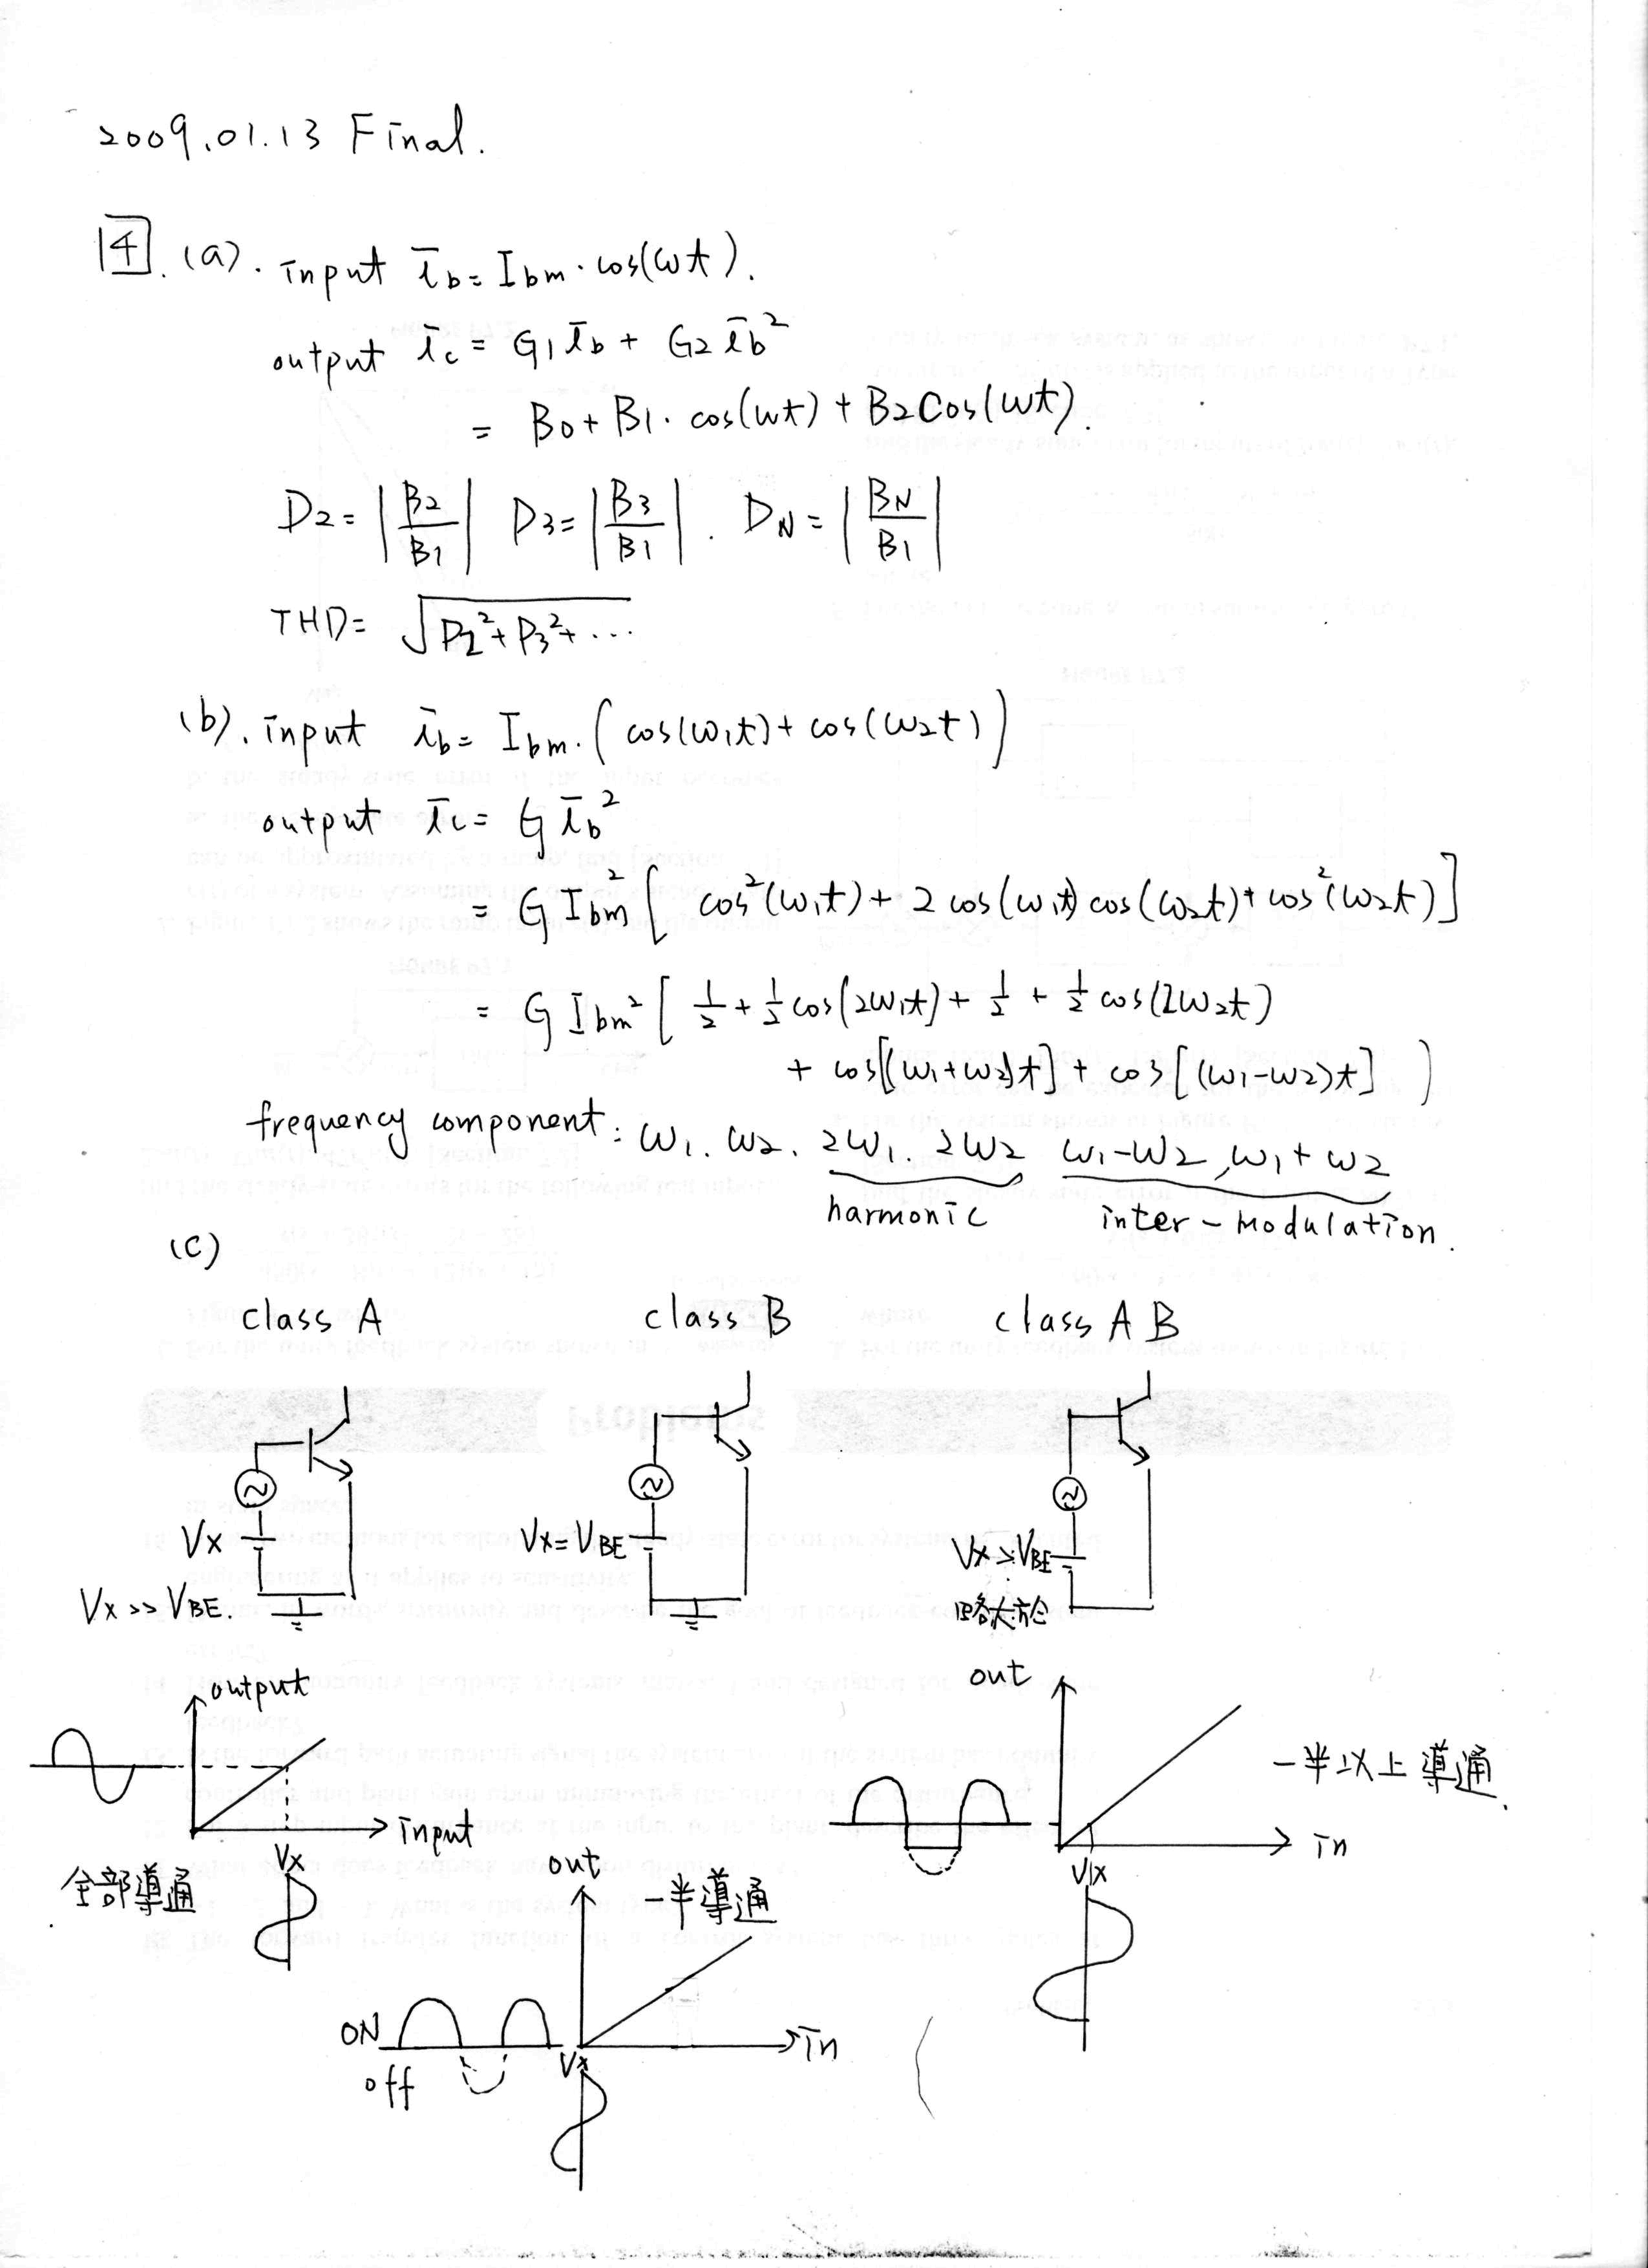 2009.01.13 Final.
4. (a). input ib = Ibm · cos(ωt).
output ic = G1 ib + G2 ib²
= B0 + B1 · cos(ωt) + B2 cos(ωt).
D2 = |B2/B1| D3 = |B3/B1| . DN = |BN/B1|
THD = √(D2² + D3² + ...)
(b). input ib = Ibm · (cos(ω1t) + cos(ω2t))
output ic = G ib²
= G Ibm² [cos²(ω1t) + 2 cos(ω1t) cos(ω2t) + cos²(ω2t)]
= G Ibm² [1/2 + 1/2 cos(2ω1t) + 1/2 + 1/2 cos(2ω2t)
+ cos[(ω1+ω2)t] + cos[(ω1-ω2)t] ]
frequency component : ω1. ω2. 2ω1. 2ω2 ω1-ω2, ω1+ω2
harmonic inter-modulation.
(c)
class A class B class AB
Vx Vx = VBE Vx > VBE
Vx >> VBE. 略大於
output out
input 一半以上導通.
in
Vx Vx
全部導通 out 一半導通
ON in
off Vx